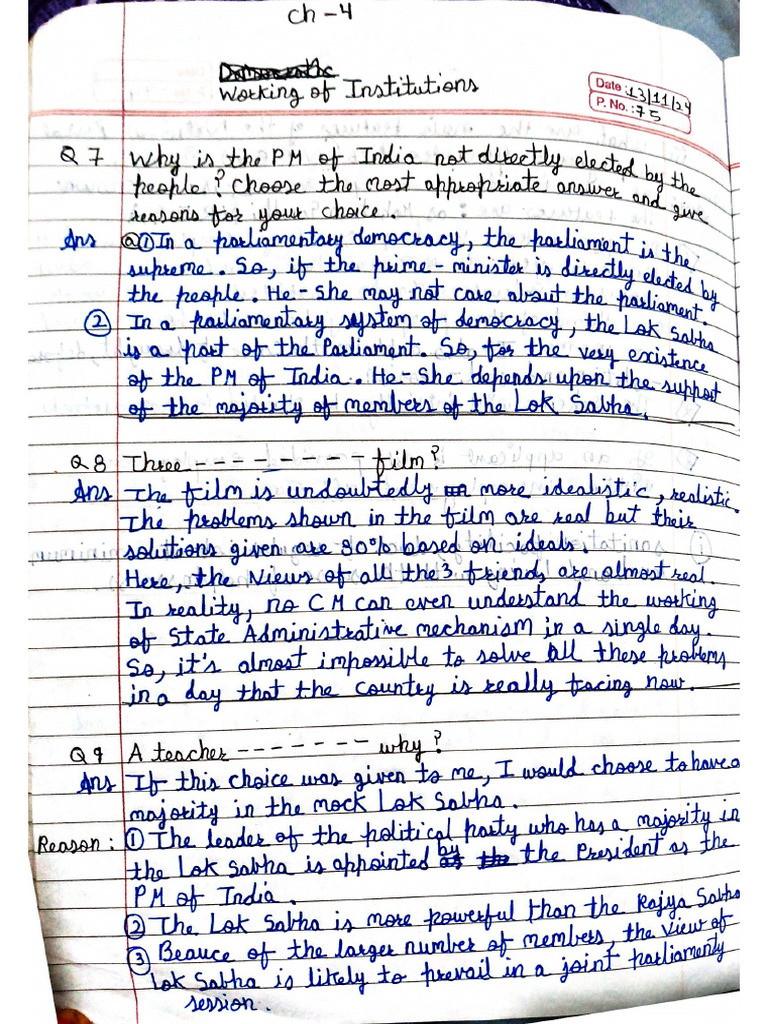 Ch - 4
Working of Institutions
Date : 13/11/24
P. No. : 75
Q 7 Why is the PM of India not directly elected by the
people? Choose the most appropriate answer and give
reasons for your choice.
Ans Q ① In a parliamentary democracy, the parliament is the
supreme. So, if the prime - minister is directly elected by
the people. He - She may not care about the parliament.
② In a parliamentary system of democracy, the Lok Sabha
is a part of the Parliament. So, for the very existence
of the PM of India. He - She depends upon the support
of the majority of members of the Lok Sabha.
Q 8 Three - - - - - - - - - film?
Ans The film is undoubtedly more idealistic, realistic.
The problems shown in the film are real but their
solutions given are 90% based on ideals.
Here, the views of all the 3 friends are almost real.
In reality, no CM can even understand the working
of State Administrative mechanism in a single day.
So, it's almost impossible to solve all these problems
in a day that the country is really facing now.
Q 9 A teacher - - - - - - - why?
Ans If this choice was given to me, I would choose to have a
majority in the mock Lok Sabha.
Reason : ① The leader of the political party who has a majority in
the Lok Sabha is appointed by the President as the
PM of India.
② The Lok Sabha is more powerful than the Rajya Sabha
③ Beauce of the larger number of members, the view of
Lok Sabha is likely to prevail in a joint parliamenty
session.